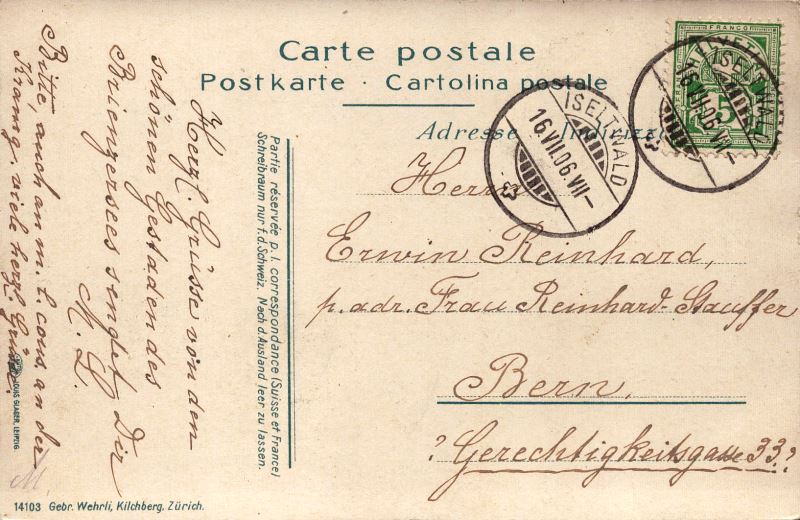 Carte postale
Postkarte · Cartolina postale
Adresse Indirizzo
FRANCO
HELVETIA
5
ISELTWALD
16.VII.06.VII–
ISELTWALD
16.VII.06.VII–
Herrn
Erwin Reinhard,
p. adr. Frau Reinhard-Stauffer
Bern.
? Gerechtigkeitsgasse 33?
Partie réservée p. l. correspondance (Suisse et France)
Schreibraum nur f. d. Schweiz. Nach d. Ausland leer zu lassen.
Herzl. Grüsse von den
schönen Gestaden des
Brienzersees sendet Dir
M. L.
Bitte, auch an m. l. cous. an der
viel herzl. Grüsse.
LOUIS GLASER, LEIPZIG
M
14103 Gebr. Wehrli, Kilchberg, Zürich.